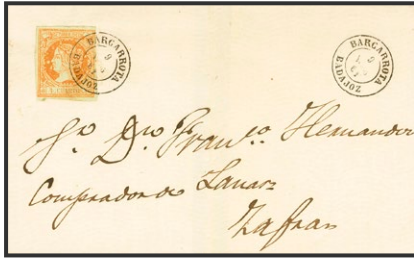 BARCARROTA
BADAJOZ
BARCARROTA
BADAJOZ
Sr. Dn. Franco. Hernandez
Comprador de Lanas
Zafra